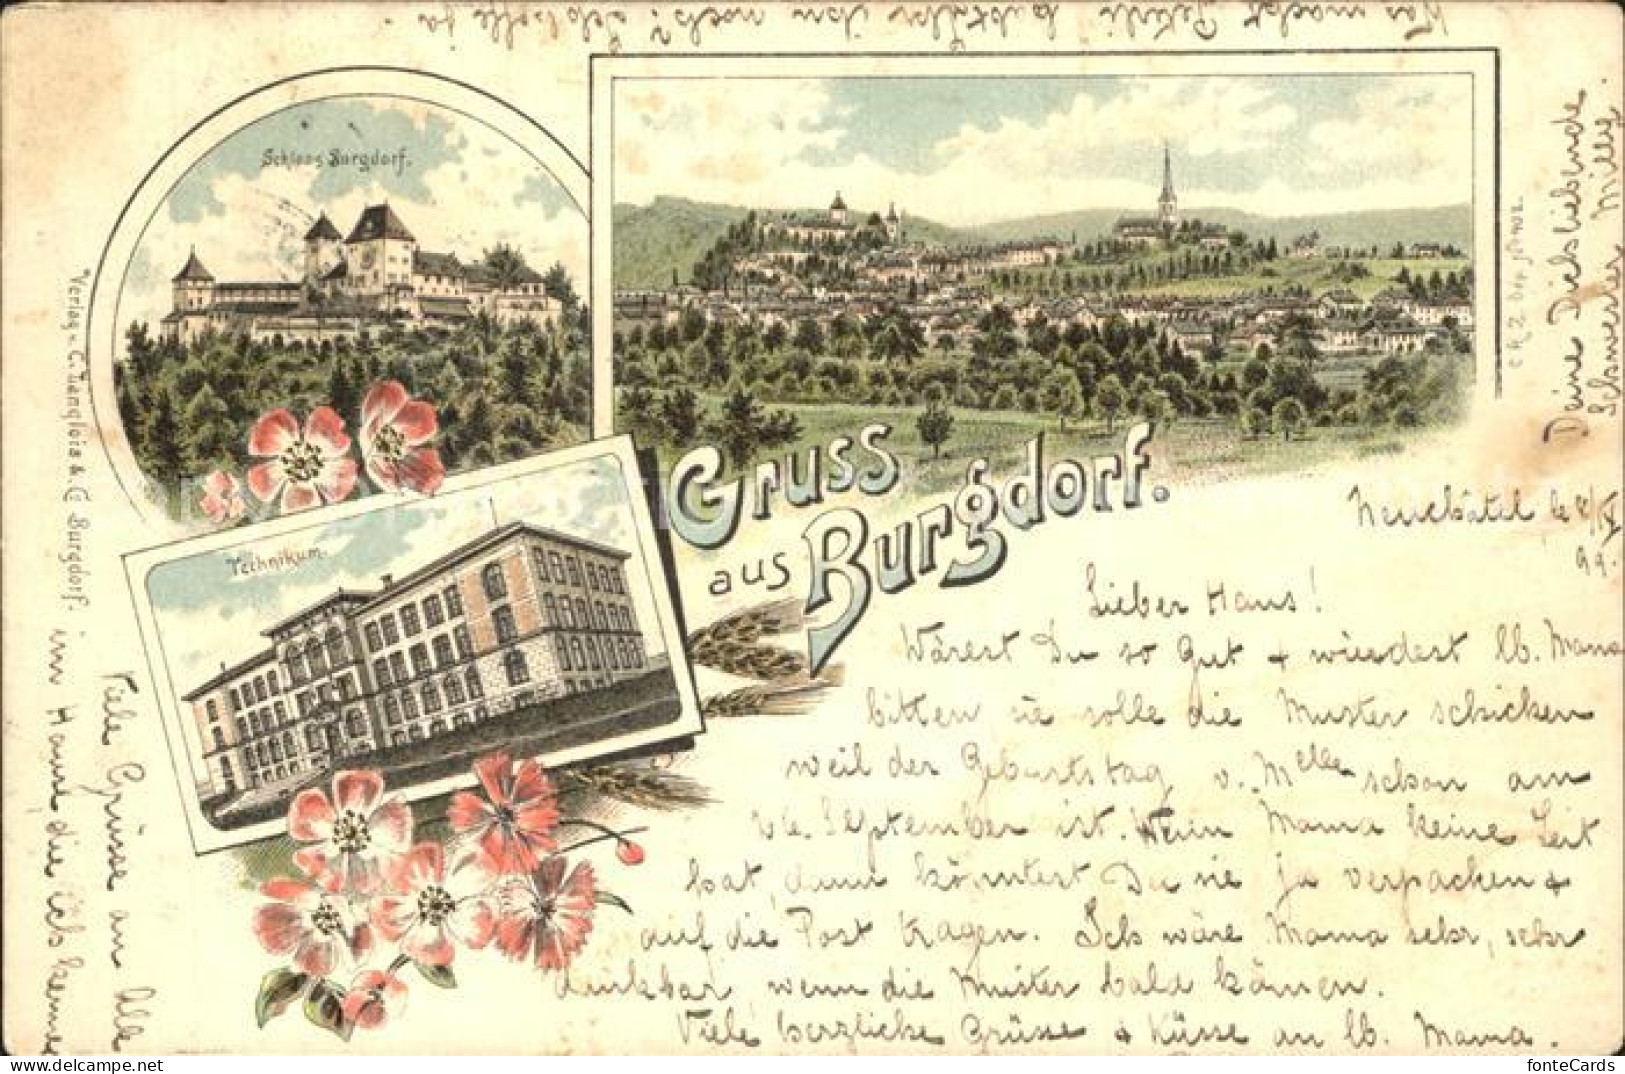 Was macht Peterli
ihn noch? Selbselle ja.
Schloss Burgdorf.
Technikum.
Gruss
aus Burgdorf.
Verlag v. C. Langlois & Cie Burgdorf.
Neuchâtel le 8/
99.
Lieber Hans!
Wärest Du so gut + würdest lb. Mama
bitten sie solle die Muster schicken
weil der Geburtstag v. Melle schon am
26. September ist. Wenn Mama keine Zeit
hat, dann könntest Du sie ja verpacken +
auf die Post tragen. Ich wäre Mama sehr, sehr
dankbar, wenn die Muster bald kämen.
Viele herzliche Grüsse + Küsse an lb. Mama.
Viele Grüsse an Alle
im Hause die ich kenne
Deine Dichliebende
Schwester Milly.
fonteCards